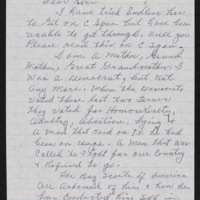 Dear Sir:
I have tried Endless here
to Get on C Span but have been
unable to get through. Will you
Please read this on C Span?
I am A Mother, Grand
Mother, & Great Grandmother. I
Was a Democrat, but Not
Any More. When the Democrats
Voted these last two issues
They voted for Homosexuality
Adultry, Abortion, Lying &
A Man that said on T.V. he had
been on drugs - A Man that was
Called to Fight for our Country
& Refused to go.
The Boy Scouts of America
Are Ashamed of him & how he
has Conducted himself in